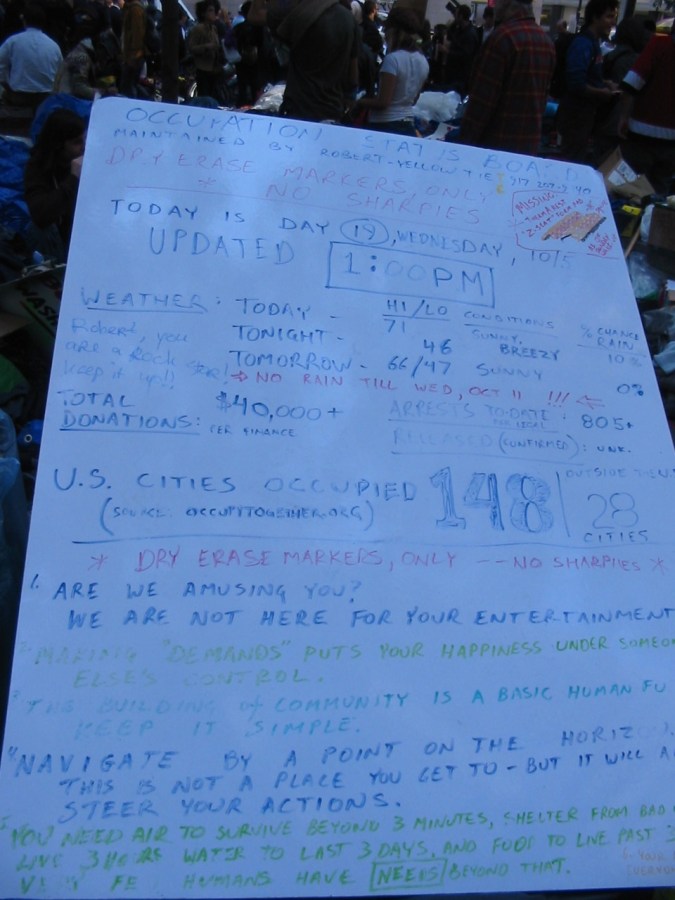 OCCUPATION STATUS BOARD
MAINTAINED BY ROBERT-YELLOW TIE 917
DRY ERASE MARKERS, ONLY
* NO SHARPIES
MISSING
TODAY IS DAY 19, WEDNESDAY, 10/5
UPDATED 1:00PM
WEATHER: HI/LO CONDITIONS % CHANCE RAIN
TODAY - 71 SUNNY, BREEZY 10%
TONIGHT - 46
TOMORROW - 66/47 SUNNY 0%
Robert, you
are a Rock Star!
keep it up!!
→ NO RAIN TILL WED, OCT 11 !!! ←
TOTAL DONATIONS: $40,000+
PER FINANCE
ARRESTS TO-DATE: 805+
PER LEGAL
RELEASED (CONFIRMED): UNK.
U.S. CITIES OCCUPIED 148
(SOURCE: OCCUPYTOGETHER.ORG)
OUTSIDE THE U.S
28
CITIES
* DRY ERASE MARKERS, ONLY -- NO SHARPIES *
1. ARE WE AMUSING YOU?
WE ARE NOT HERE FOR YOUR ENTERTAINMENT
MAKING "DEMANDS" PUTS YOUR HAPPINESS UNDER SOMEO
ELSE'S CONTROL.
THE BUILDING of COMMUNITY IS A BASIC HUMAN FU
KEEP IT SIMPLE.
"NAVIGATE BY A POINT ON THE HORIZON.
THIS IS NOT A PLACE YOU GET TO - BUT IT WILL A
STEER YOUR ACTIONS.
YOU NEED AIR TO SURVIVE BEYOND 3 MINUTES, SHELTER FROM BAD
LIVE 3 HOURS WATER TO LAST 3 DAYS, AND FOOD TO LIVE PAST 3
HUMANS HAVE NEEDS BEYOND THAT.